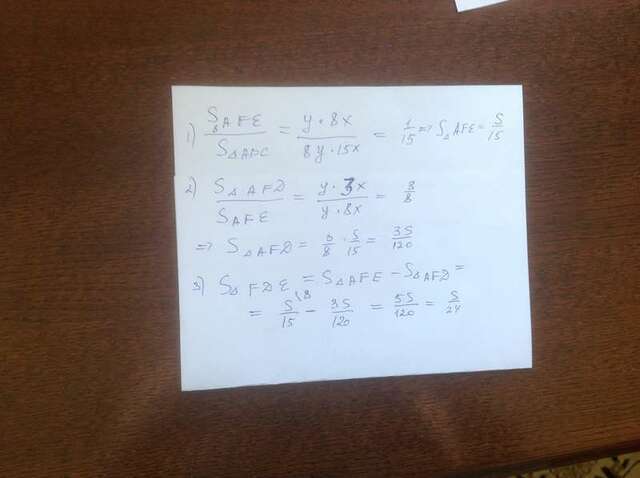 1) S△AFE / S△ABC = y·8x / 8y·15x = 1/15 ⇒ S△AFE = S/15
2) S△AFD / SAFE = y·3x / y·8x = 3/8
⇒ S△AFD = 3/8 · S/15 = 3S/120
3) S△FDE = S△AFE − S△AFD =
= S/15 \8 − 3S/120 = 5S/120 = S/24